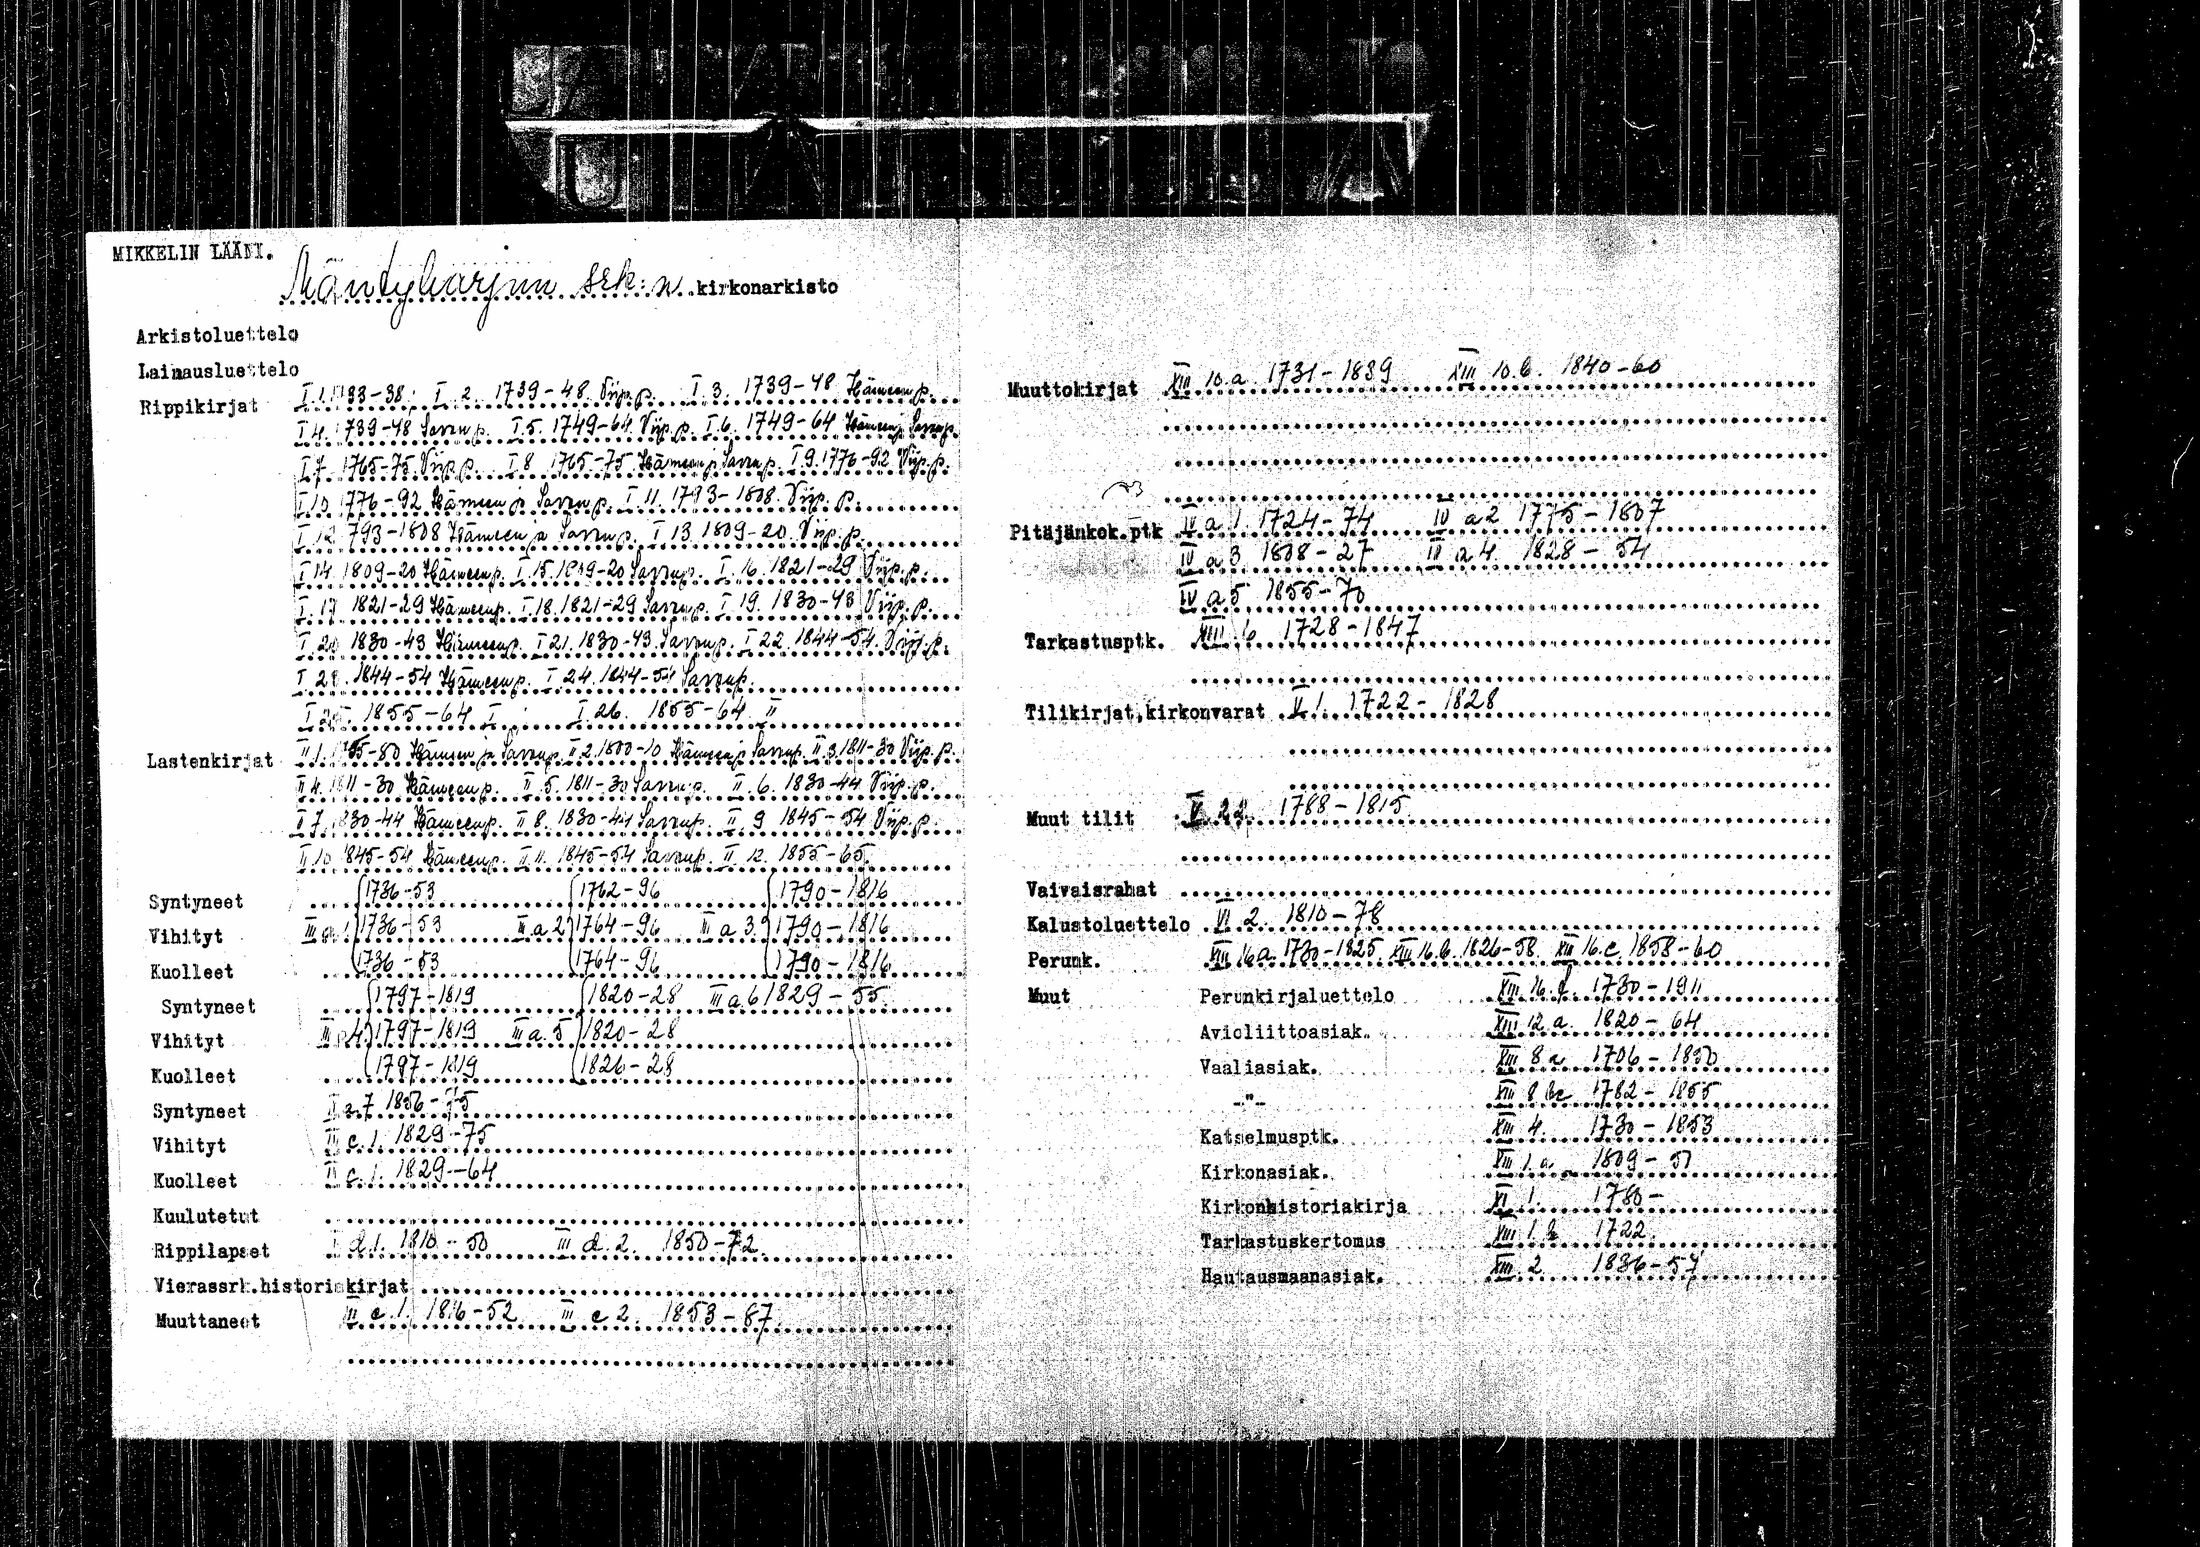 MIKKELIN LÄÄNI.
Mäntyharjun srk:n kirkonarkisto
Arkistoluettelo
Lainausluettelo
Rippikirjat I.1. 1733-38; I.2. 1739-48 Viip.p. I.3. 1739-48 Hämeenp.
I4. 1739-48 Savonp. I.5. 1749-64 Viip.p. I.6. 1749-64 Hämeen ja Savonp.
I7. 1765-75 Viip.p. I.8. 1765-75 Hämeen ja Savonp. I.9. 1776-92 Viip.p.
I.10. 1776-92 Hämeen ja Savonp. I.11. 1793-1808. Viip. p.
I.12. 1793-1808 Hämeen ja Savonp. I 13. 1809-20. Viip.p.
I14. 1809-20 Hämeenp. I.15. 1809-20 Savonp. I.16. 1821-29 Viip.p.
I.17 1821-29 Hämeenp. I.18. 1821-29 Savonp. I 19. 1830-43 Viip.p.
I 20 1830-43 Hämeenp. I 21. 1830-43. Savonp. I 22. 1844-54. Viip.p.
I 23. 1844-54 Hämeenp. I 24. 1844-54 Savonp.
I 25. 1855-64 I I.26. 1855-64 II
Lastenkirjat II 1. 1765-80 Hämeen ja Savonp. II 2. 1800-10 Hämeen ja Savonp. II.3. 1811-30 Viip.p.
II 4. 1811-30 Hämeenp. II.5. 1811-30 Savonp. II.6. 1830-44 Viip.p.
II 7. 1830-44 Hämeenp. II 8. 1830-44 Savonp. II 9 1845-54 Viip.p.
II 10 1845-54 Hämeenp. II.11. 1845-54 Savonp. II.12. 1855-65.
Syntyneet 1736-53 1762-96 1790-1816
Vihityt III a.1 1736-53 III a 2 1764-96 III a 3. 1790-1816
Kuolleet 1736-53 1764-96 1790-1816
Syntyneet 1797-1819 1820-28 III a.6 1829-55.
Vihityt III a 4 1797-1819 III a.5 1820-28
Kuolleet 1797-1819 1826-28
Syntyneet II a.7 1856-75
Vihityt III c.1. 1829-75
Kuolleet II c.1. 1829-64
Kuulutetut
Rippilapset I d.1. 1810-50 III d.2. 1850-72.
Vierassrk.historiakirjat
Muuttaneet III e.1. 1816-52 III e 2. 1853-87
Muuttokirjat XIII 10.a. 1731-1839 XIII 10.b. 1840-60
Pitäjänkok.ptk IV a 1. 1724-74 IV a 2 1775-1807
IV a 3 1808-27 IV a 4. 1828-54
IV a 5 1855-70
Tarkastusptk. XIII.6. 1728-1847
Tilikirjat,kirkonvarat V.1. 1722-1828
Muut tilit V. 22. 1788-1815.
Vaivaisrahat
Kalustoluettelo VI 2. 1810-78
Perunk. XIII 16a. 1730-1825. XIII 16.b. 1826-58. XIII 16.c. 1858-60
Muut Perunkirjaluettelo XIII 16.d. 1730-1911
Avioliittoasiak. XIII 12 a. 1820-64
Vaaliasiak. XIII 8 a 1706-1850
-"- XIII 8 bc 1782-1855
Katselmusptk. XIII 4. 1730-1853
Kirkonasiak. XIII 1.a. 1809-51
Kirkonhistoriakirja XI 1. 1780-
Tarkastuskertomus XIII 1.b 1722.
Hautausmaanasiak. XIII.2. 1836-57